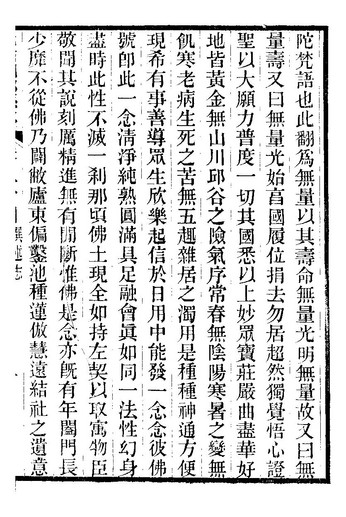 陀梵語也此翻爲無量以其壽命無量光明無量故又曰無
量壽又曰無量光始富國履位捐去勿居超然獨覺悟心證
聖以大願力普度一切其國悉以上妙眾寶莊嚴曲盡華好
地皆黃金無山川邱谷之險氣序常春無陰陽寒暑之變無
飢寒老病生死之苦無五趣雜居之濁用是種種神通方便
現希有事善導眾生欣樂起信於日用中能發一念念彼佛
號卽此一念清淨純熟圓滿具足融會眞如同一法性幻身
盡時此性不滅一刹那頃佛土現全如持左契以取寓物臣
敬聞其說刻厲精進無有閒斷惟佛是念亦旣有年闔門長
少靡不從佛乃闢敝廬東偏鑿池種蓮倣慧遠結社之遺意
撰述志